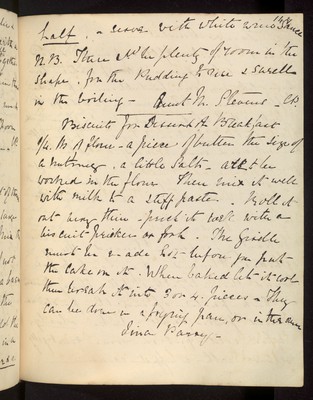 half. serve with white wine sauce
N.B. There shd be plenty of room in the
shape, for the Pudding to rise & swell
in the boiling - Aunt M.
Biscuits for Dessert & Breakfast
1/4 lb of flour - a piece of butter the size of
a nutmeg, a little salt - all to be
worked in the flour. Then mix it well
with milk to a stiff paste. Roll it
out very thin - prick it well with a
biscuit pricker or fork. The Griddle
must be made hot before you put
the cake on it. When baked let it cool
then break it into 3 or 4 pieces - They
can be done in a frying pan, or in the oven